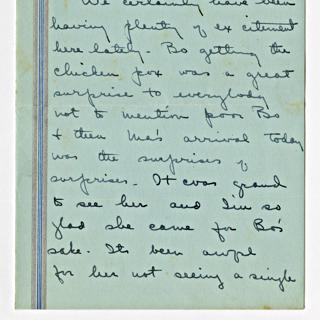 We certainly have been
having plenty of ex citement
here lately. Bo getting the
chicken pox was a great
surprise to everybody
not to mention poor Bo
+ then Ma's arrival today
was the surprises of
surprises. It was grand
to see her and I'm so
glad she came for Bo's
sake. Its been awful
for her not seeing a single